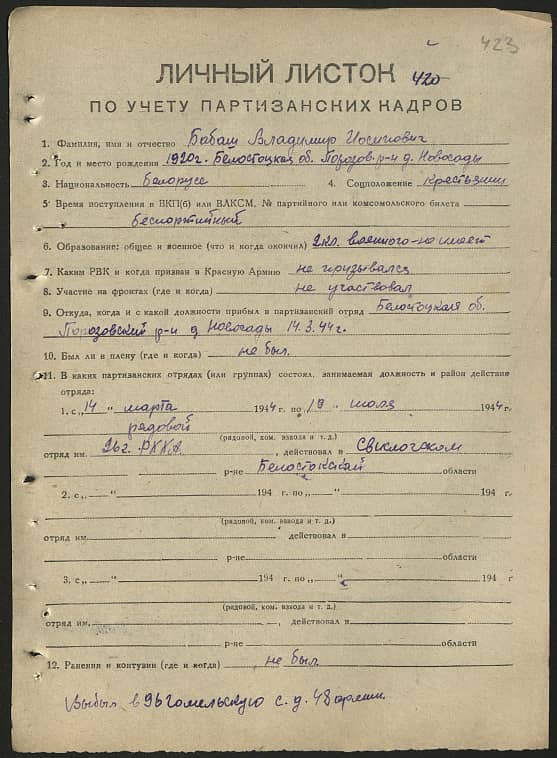 423
ЛИЧНЫЙ ЛИСТОК 420
ПО УЧЕТУ ПАРТИЗАНСКИХ КАДРОВ
1. Фамилия, имя и отчество Бабаш Владимир Иосипович
2. Год и место рождения 1920г. Белостоцкая об. Порозов. р-н д. Новосады
3. Национальность Белорусс 4. Соцположение крестьянин
5. Время поступления в ВКП(б) или ВЛКСМ, № партийного или комсомольского билета
беспартийный
6. Образование: общее и военное (что и когда окончил) 2 кл. военного-не имеет
7. Каким РВК и когда призван в Красную Армию не призывался
8. Участие на фронтах (где и когда) не участвовал
9. Откуда, когда и с какой должности прибыл в партизанский отряд Белостоцкая об.
Порозовский р-н д Новосады 14.3.44г.
10. Был ли в плену (где и когда) не был.
11. В каких партизанских отрядах (или группах) состоял, занимаемая должность и район действия
отряда:
1. с „14 " марта 1944 г. по „19 " июля 1944 г.
рядовой
(рядовой, ком. взвода и т. д.)
отряд им. 26г. РККА , действовал в Свислочском
р-не Белостокской области
2. с „ " 194 г. по „ " 194 г.
(рядовой, ком. взвода и т. д.)
отряд им. действовал в
р-не области
3. с „ " 194 г. по „ " 194 г
(рядовой, ком. взвода и т. д.)
отряд им. , действовал в
р-не области
12. Ранения и контузии (где и когда) не был.
Выбыл в 96 гомельскую с. д. 48 армии.